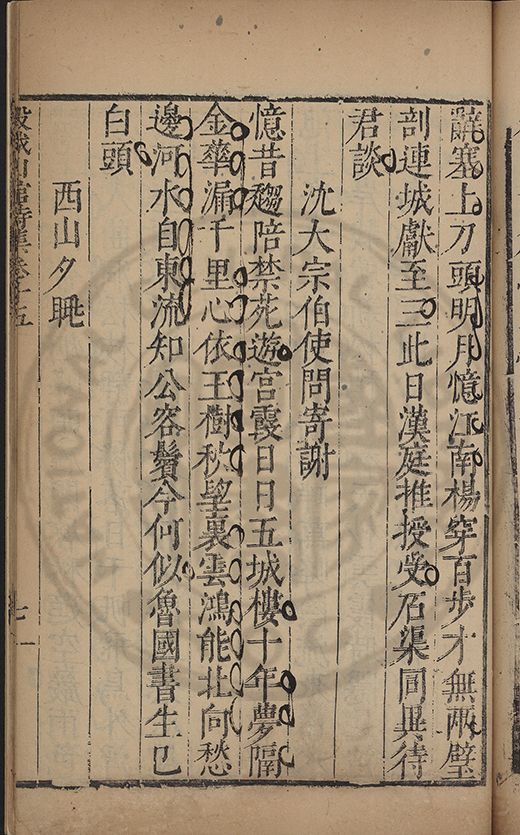 辭塞上刀頭明月憶江南楊穿百步才無兩璧
剖連城獻至三此日漢庭推授受石渠同異待
君談
沈大宗伯使問寄謝
憶昔趨陪禁苑遊宮霞日日五城樓十年夢隔
金華漏千里心依玉樹秋望裏雲鴻能北向愁
邊河水自東流知公客鬢今何似魯國書生已
白頭
西山夕眺
穀城山館詩集卷十五
七